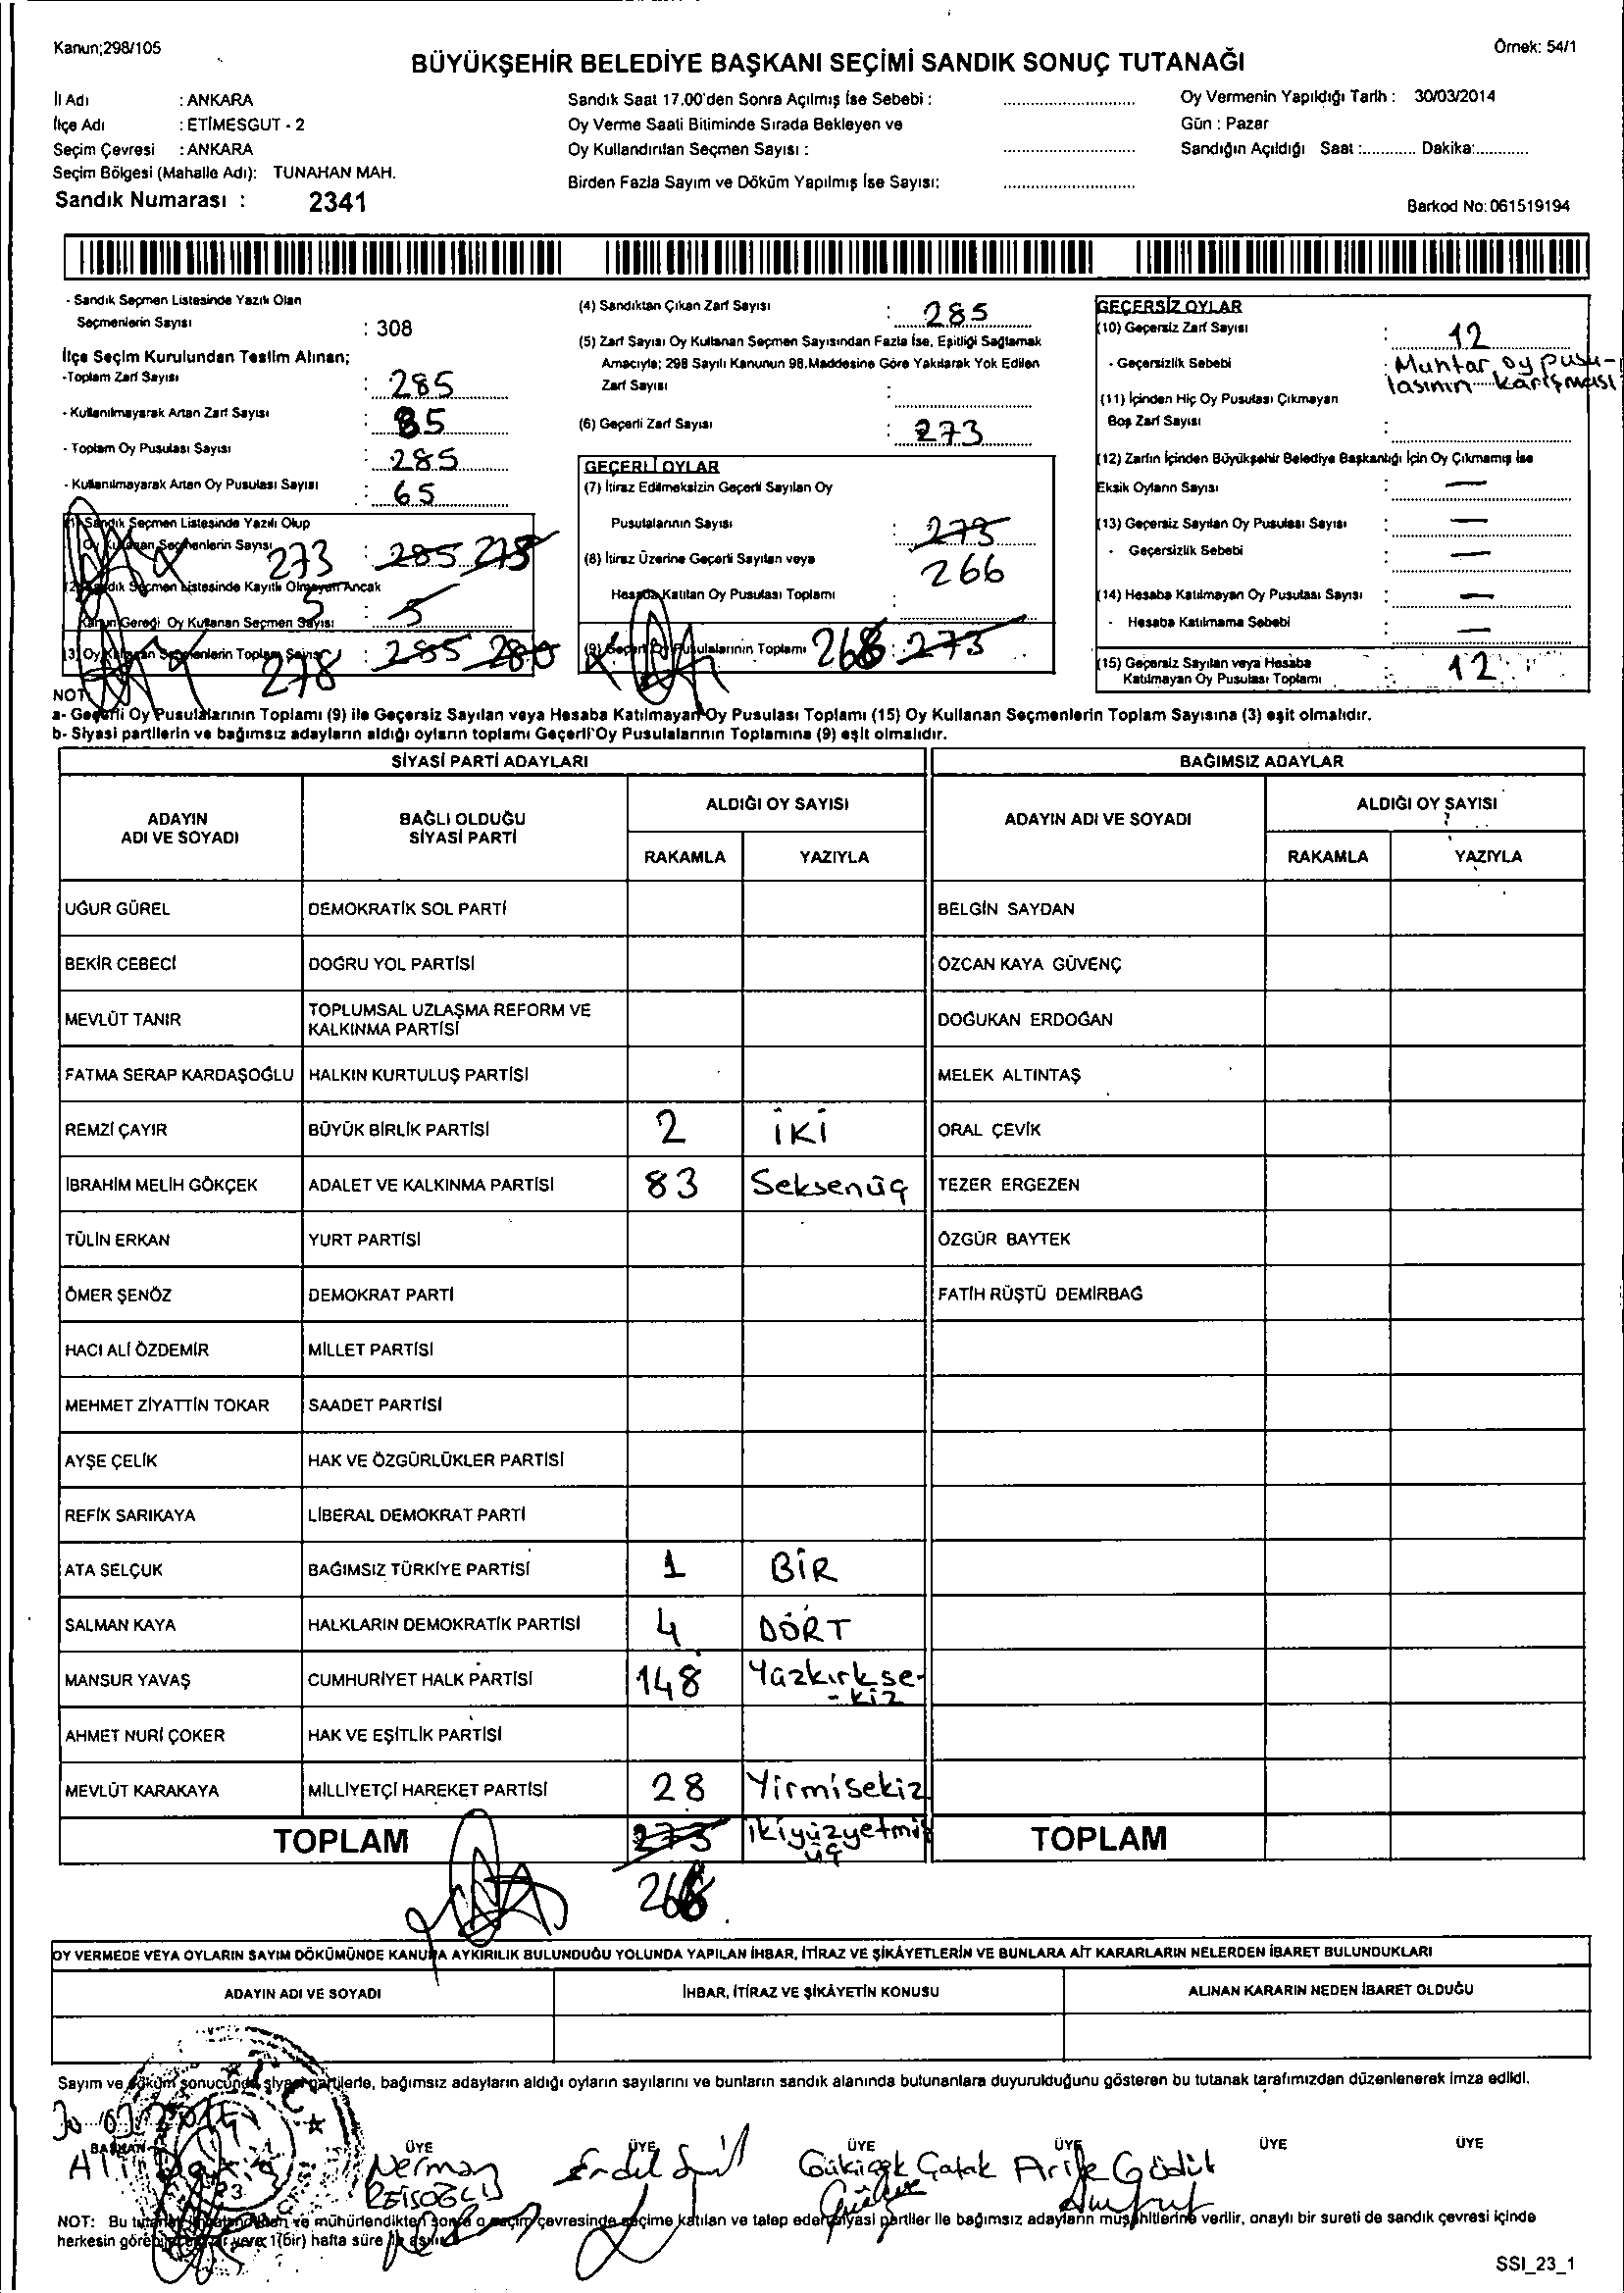 Kanun;298/105
Örnek: 54/1
BÜYÜKŞEHİR BELEDİYE BAŞKANI SEÇİMİ SANDIK SONUÇ TUTANAĞI
İl Adı : ANKARA
İlçe Adı : ETİMESGUT - 2
Seçim Çevresi : ANKARA
Seçim Bölgesi (Mahalle Adı): TUNAHAN MAH.
Sandık Numarası : 2341
Sandık Saat 17.00'den Sonra Açılmış İse Sebebi :
Oy Verme Saati Bitiminde Sırada Bekleyen ve
Oy Kullandırılan Seçmen Sayısı :
Birden Fazla Sayım ve Döküm Yapılmış İse Sayısı:
Oy Vermenin Yapıldığı Tarih : 30/03/2014
Gün : Pazar
Sandığın Açıldığı Saat :............ Dakika:............
Barkod No: 061519194
- Sandık Seçmen Listesinde Yazılı Olan
Seçmenlerin Sayısı : 308
İlçe Seçim Kurulundan Teslim Alınan;
-Toplam Zarf Sayısı : 285
- Kullanılmayarak Artan Zarf Sayısı : 85
- Toplam Oy Pusulası Sayısı : 285
- Kullanılmayarak Artan Oy Pusulası Sayısı : 65
(1) Sandık Seçmen Listesinde Yazılı Olup
Oy Kullanan Seçmenlerin Sayısı 273 : 285 275
(2) Sandık Seçmen Listesinde Kayıtlı Olmayan Ancak
Kanun Gereği Oy Kullanan Seçmen Sayısı 5 : 5
(3) Oy Kullanan Seçmenlerin Toplam Sayısı 278 : 285 280
(4) Sandıktan Çıkan Zarf Sayısı : 285
(5) Zarf Sayısı Oy Kullanan Seçmen Sayısından Fazla İse, Eşitliği Sağlamak
Amacıyla; 298 Sayılı Kanunun 98.Maddesine Göre Yakılarak Yok Edilen
Zarf Sayısı :
(6) Geçerli Zarf Sayısı : 273
GEÇERLİ OYLAR
(7) İtiraz Edilmeksizin Geçerli Sayılan Oy
Pusulalarının Sayısı : 273
(8) İtiraz Üzerine Geçerli Sayılan veya 266
Hesaba Katılan Oy Pusulası Toplamı :
(9) Geçerli Oy Pusulalarının Toplamı 268 : 273
GEÇERSİZ OYLAR
(10) Geçersiz Zarf Sayısı : 12
- Geçersizlik Sebebi : Muhtar oy pusu-
lasının karışması
(11) İçinden Hiç Oy Pusulası Çıkmayan
Boş Zarf Sayısı :
(12) Zarfın İçinden Büyükşehir Belediye Başkanlığı İçin Oy Çıkmamış İse
Eksik Oyların Sayısı : —
(13) Geçersiz Sayılan Oy Pusulası Sayısı : —
- Geçersizlik Sebebi : —
(14) Hesaba Katılmayan Oy Pusulası Sayısı : —
- Hesaba Katılmama Sebebi : —
(15) Geçersiz Sayılan veya Hesaba
Katılmayan Oy Pusulası Toplamı : 12
NOT:
a- Geçerli Oy Pusulalarının Toplamı (9) ile Geçersiz Sayılan veya Hesaba Katılmayan Oy Pusulası Toplamı (15) Oy Kullanan Seçmenlerin Toplam Sayısına (3) eşit olmalıdır.
b- Siyasi partilerin ve bağımsız adayların aldığı oyların toplamı Geçerli Oy Pusulalarının Toplamına (9) eşit olmalıdır.
SİYASİ PARTİ ADAYLARI
BAĞIMSIZ ADAYLAR
ADAYIN
ADI VE SOYADI
BAĞLI OLDUĞU
SİYASİ PARTİ
ALDIĞI OY SAYISI
RAKAMLA YAZIYLA
ADAYIN ADI VE SOYADI
ALDIĞI OY SAYISI
RAKAMLA YAZIYLA
UĞUR GÜREL DEMOKRATİK SOL PARTİ BELGİN SAYDAN
BEKİR CEBECİ DOĞRU YOL PARTİSİ ÖZCAN KAYA GÜVENÇ
MEVLÜT TANIR TOPLUMSAL UZLAŞMA REFORM VE
KALKINMA PARTİSİ DOĞUKAN ERDOĞAN
FATMA SERAP KARDAŞOĞLU HALKIN KURTULUŞ PARTİSİ MELEK ALTINTAŞ
REMZİ ÇAYIR BÜYÜK BİRLİK PARTİSİ 2 İKİ ORAL ÇEVİK
İBRAHİM MELİH GÖKÇEK ADALET VE KALKINMA PARTİSİ 83 Seksenüç TEZER ERGEZEN
TÜLİN ERKAN YURT PARTİSİ ÖZGÜR BAYTEK
ÖMER ŞENÖZ DEMOKRAT PARTİ FATİH RÜŞTÜ DEMİRBAĞ
HACI ALİ ÖZDEMİR MİLLET PARTİSİ
MEHMET ZİYATTİN TOKAR SAADET PARTİSİ
AYŞE ÇELİK HAK VE ÖZGÜRLÜKLER PARTİSİ
REFİK SARIKAYA LİBERAL DEMOKRAT PARTİ
ATA SELÇUK BAĞIMSIZ TÜRKİYE PARTİSİ 1 BİR
SALMAN KAYA HALKLARIN DEMOKRATİK PARTİSİ 4 DÖRT
MANSUR YAVAŞ CUMHURİYET HALK PARTİSİ 148 Yüzkırkse-
-kiz
AHMET NURİ ÇOKER HAK VE EŞİTLİK PARTİSİ
MEVLÜT KARAKAYA MİLLİYETÇİ HAREKET PARTİSİ 28 Yirmisekiz
TOPLAM 273 ikiyüzyetmiş TOPLAM
üç
268
OY VERMEDE VEYA OYLARIN SAYIM DÖKÜMÜNDE KANUNA AYKIRILIK BULUNDUĞU YOLUNDA YAPILAN İHBAR, İTİRAZ VE ŞİKÂYETLERİN VE BUNLARA AİT KARARLARIN NELERDEN İBARET BULUNDUKLARI
ADAYIN ADI VE SOYADI İHBAR, İTİRAZ VE ŞİKÂYETİN KONUSU ALINAN KARARIN NEDEN İBARET OLDUĞU
Sayım ve döküm sonucunda siyasi partilerle, bağımsız adayların aldığı oyların sayılarını ve bunların sandık alanında bulunanlara duyurulduğunu gösteren bu tutanak tarafımızdan düzenlenerek imza edildi.
30/03/2014
BAŞKAN ÜYE ÜYE ÜYE ÜYE ÜYE ÜYE
Ali Nerman Erdil Gülçiçek Çatak Arife Güdük
REİSOĞLU
NOT: Bu tutanak imzalandıktan ve mühürlendikten sonra o seçim çevresinde seçime katılan ve talep eden siyasi partiler ile bağımsız adayların müşahitlerine verilir, onaylı bir sureti de sandık çevresi içinde
herkesin görebileceği bir yere 1(bir) hafta süre ile asılır.
SSI_23_1